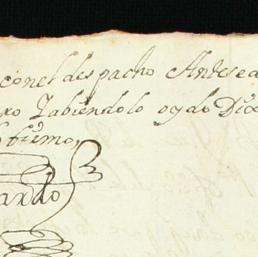 conel despacho Antesea
ro Yabiendolo oydo Dixo
firmo
ardo